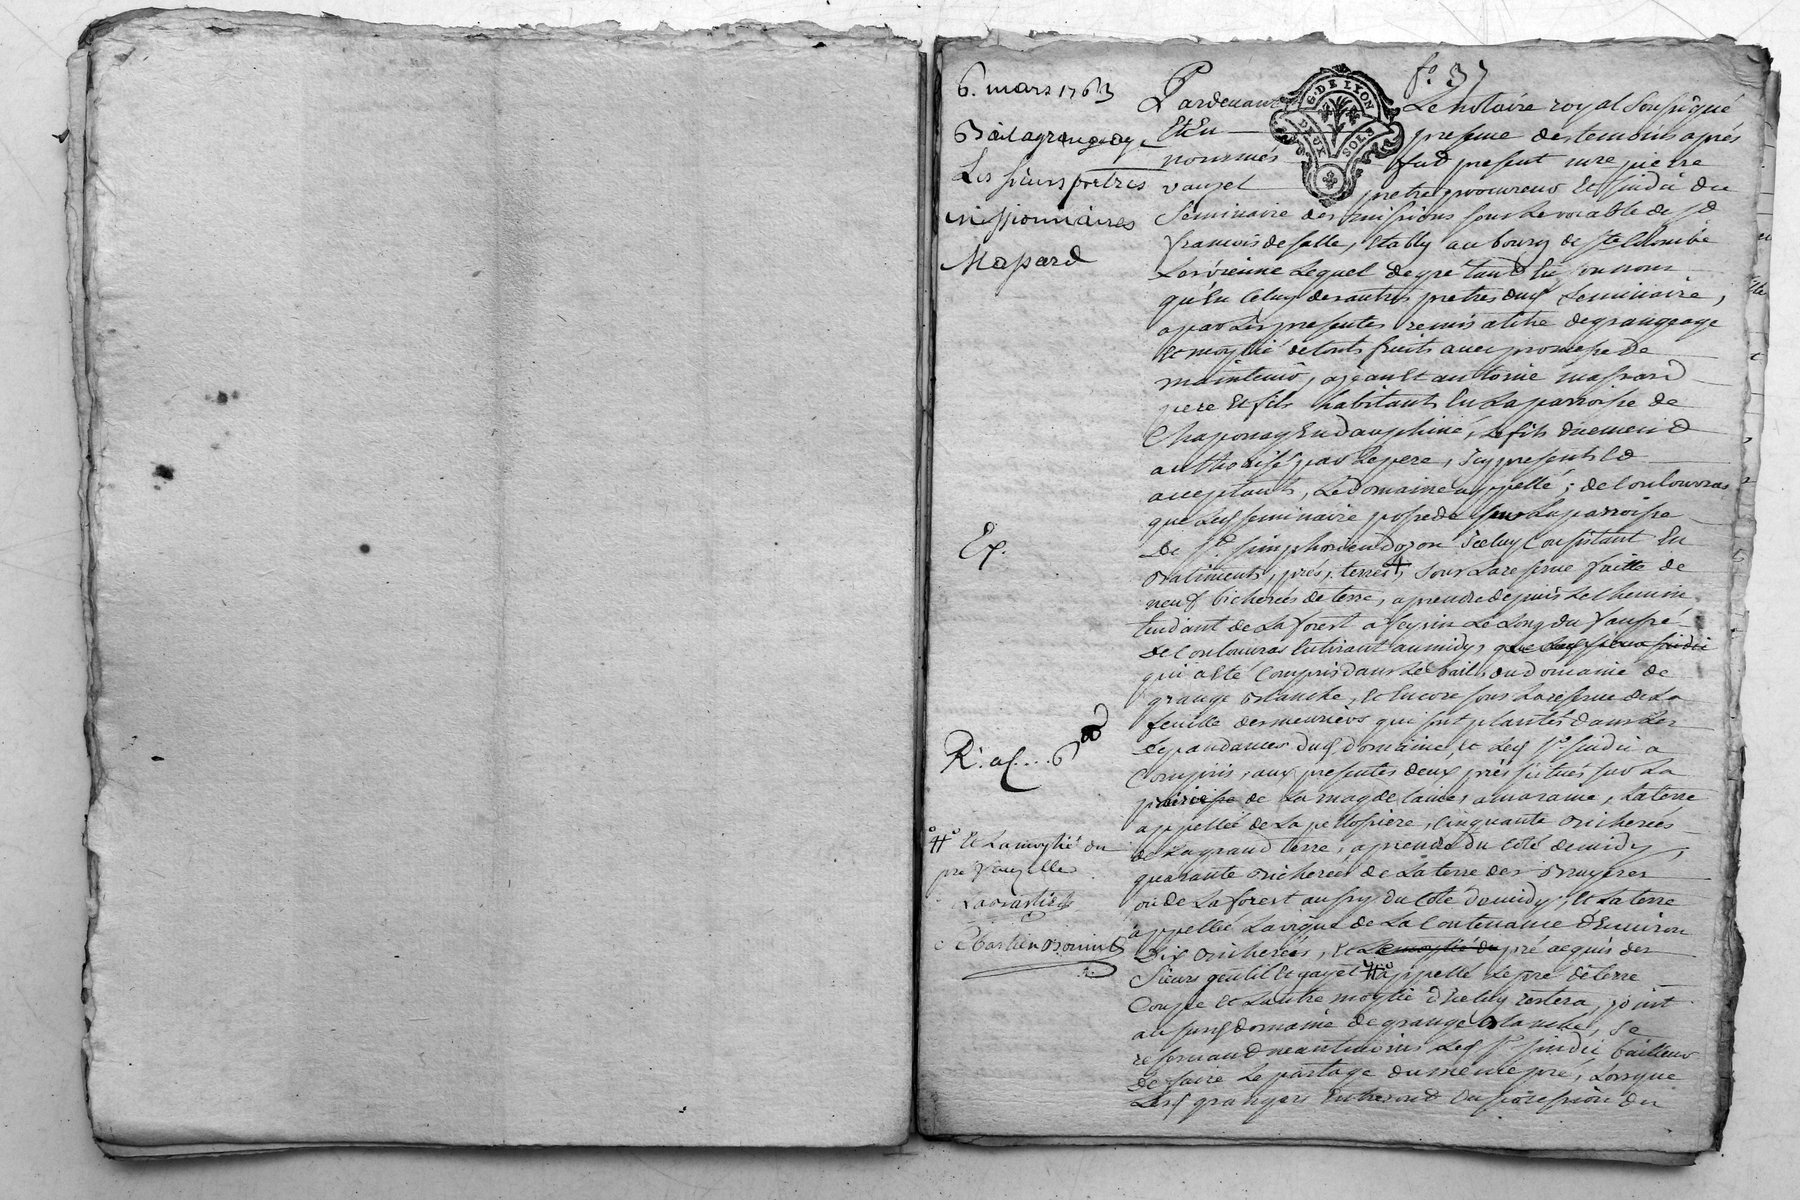 6. mars 1763
Bail a grangeage
Les sieurs prêtres
missionnaires
Masard
Ex.
R. a C.... 6
# Et la moytié du
pré
f.° 37
G. DE LYON
DEUX SOLS
Pardevant Le notaire royal soussigné
Et En presence des temoins aprés
nommés fud present mre pierre
vauzel pretre procureur Et sindic du
Seminaire des missions sous Le vocable de st
francois de salle, Etably au bourg de ste Colombe
Les vienne Lequel de gré tand En son nom
qu'En Celuy des autres pretres dud Seminaire,
a par Les presentes remis a titre de grangeage
Et moytié de touts fruits avec promesse de
maintenir, a jean Et antoine masard
pere Et fils habitants En La parroisse de
Chaponay En dauphiné, Le fils duement
authorisé par Le pere, icy presents Et
acceptants, Le domaine appellé; de Coulouvras
que Led seminaire possede sur La parroisse
De st simphorien dozon Iceluy Consistant En
batiments, prés, terres, sous La reserve faitte de
neuf bicherées de terre, a prendre depuis Le Chemin
tendant de La forest a feysin Le Long du
de Coulouvras En tirant au midy, que Led sieur sindic
qui a Eté Compris dans Le bail du domaine de
grange blanche, Et Encore sous La reserve de La
feuille des meuriers qui sont plantés dans Les
dependances dud domaine, Et Led sr sindic a
Compris, aux presentes deux prés situés sur La
de La magdelaine, a maraine, La terre
appellée de La pelossiere, Cinquante bicherées
de La grand terre, a prendre du Coté de midy,
quarante bicherées de La terre des bruyeres
ou de La forest aussy du Coté de midy, Et La terre
appellée La vigne de La Contenance d'Environ
Dix bicherées, Et La moytié du pré acquis des
Sieurs gentil Et gayet # appellé Le pré de terre
Coupe Et L'autre moytié d'Iceluy restera joint
au susd domaine de grange blanche, se
reservand neantmoins Led sr sindic bailleur
de faire Le partage du meme pré, Lorsque
Lesd grangers Entreront En possession du